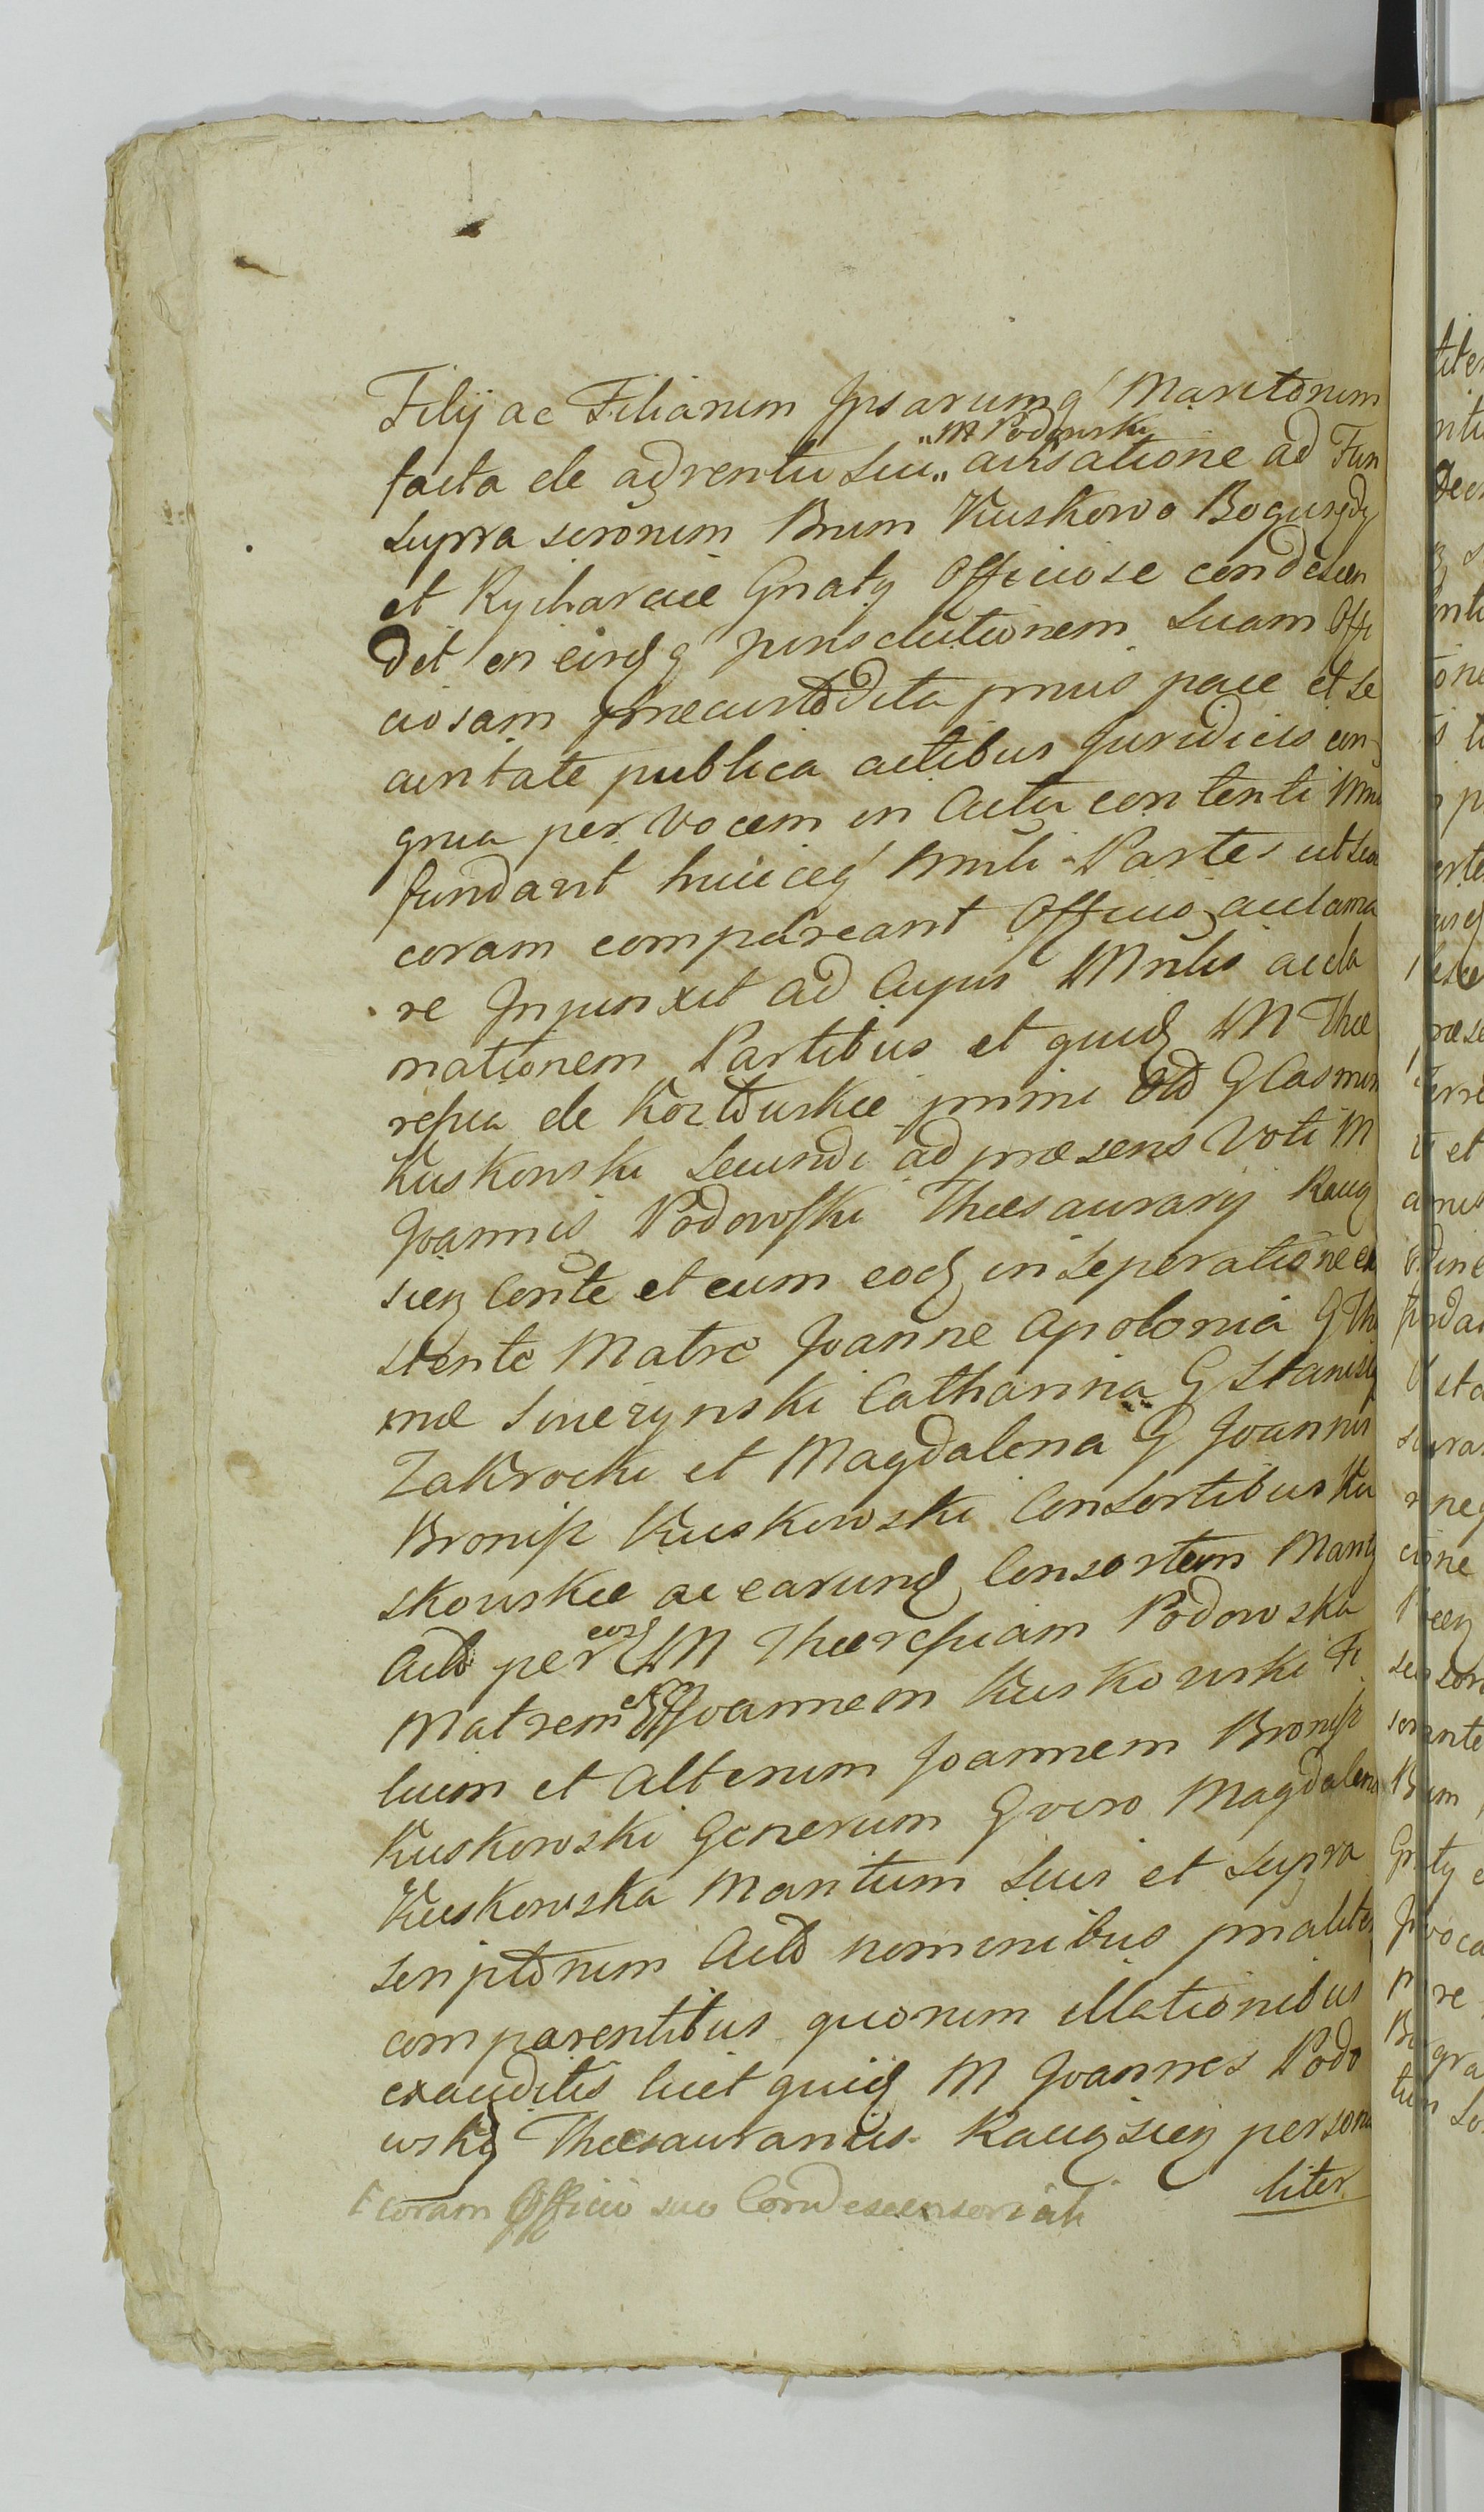 Filij ac Filiarum Ipsarumq Maritorum
„M Podowski
facta de adventu suu„ avisatione ad Fun
supra scrorum Brum Kuskowo Bogusędy
et Rycharcice Gnatq Officiose condescen
dit en eirdq jurisdictionem suam Offi
ciosam praecustodita prius pace et se
curitate publica actibus Juridicis con-
grua per vocem in Actu contenti Mnri
fundavit huicq Mnrli Partes ut sua
coram compareant Officio, acclama
re Injunxit ad Cujus Mnrlis accla
mationem Partibus et quid M There
resia de Kozłowskie primi Old G Casmiri
Kuskowski secundi ad praesens Voti M
Joannis Podowski Thesaurarij Raciq
sieñ Conte et cum eod inseperatione ex
stente Matre Joanne Apolonia G Tho
mae Smierzynski Catharina G Stanislai
Zakrocki et Magdalena G Joannis
Bronisz Kuskowski Consortibus Ku
skowskie ac earund Consortem Maritq
Actt per eord M Theresiam Podowska
Matrem Joannem Kuskowski Fi
lium et Alterum Joannem Bronisz
Kuskowski Generum G vero Magdalena
Kuskowska Maritum suis et supra
scriptorum Actt nominibus prnaliter
comparentibus quorum illationibus
exauditis licet quid M Joannes Podo
wski Thesaurarius Raciqsieñ persona
liter
coram Officio suo Condescensoriali